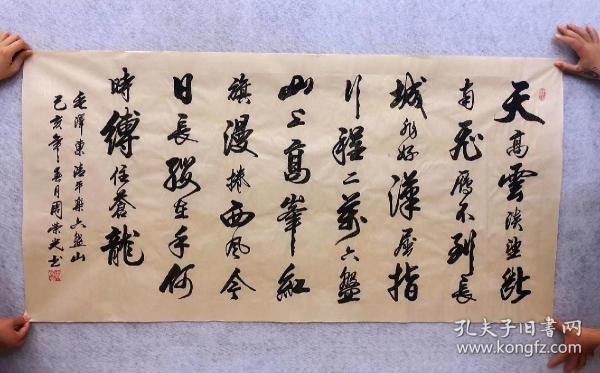 天高雲淡望斷
南飛雁不到長
城非好漢屈指
行程二萬六盤
山上高峯紅
旗漫捲西風今
日長纓在手何
時縛住蒼龍
毛澤東清平樂六盤山
己亥年月周书
孔夫子旧书网
www.kongfz.com